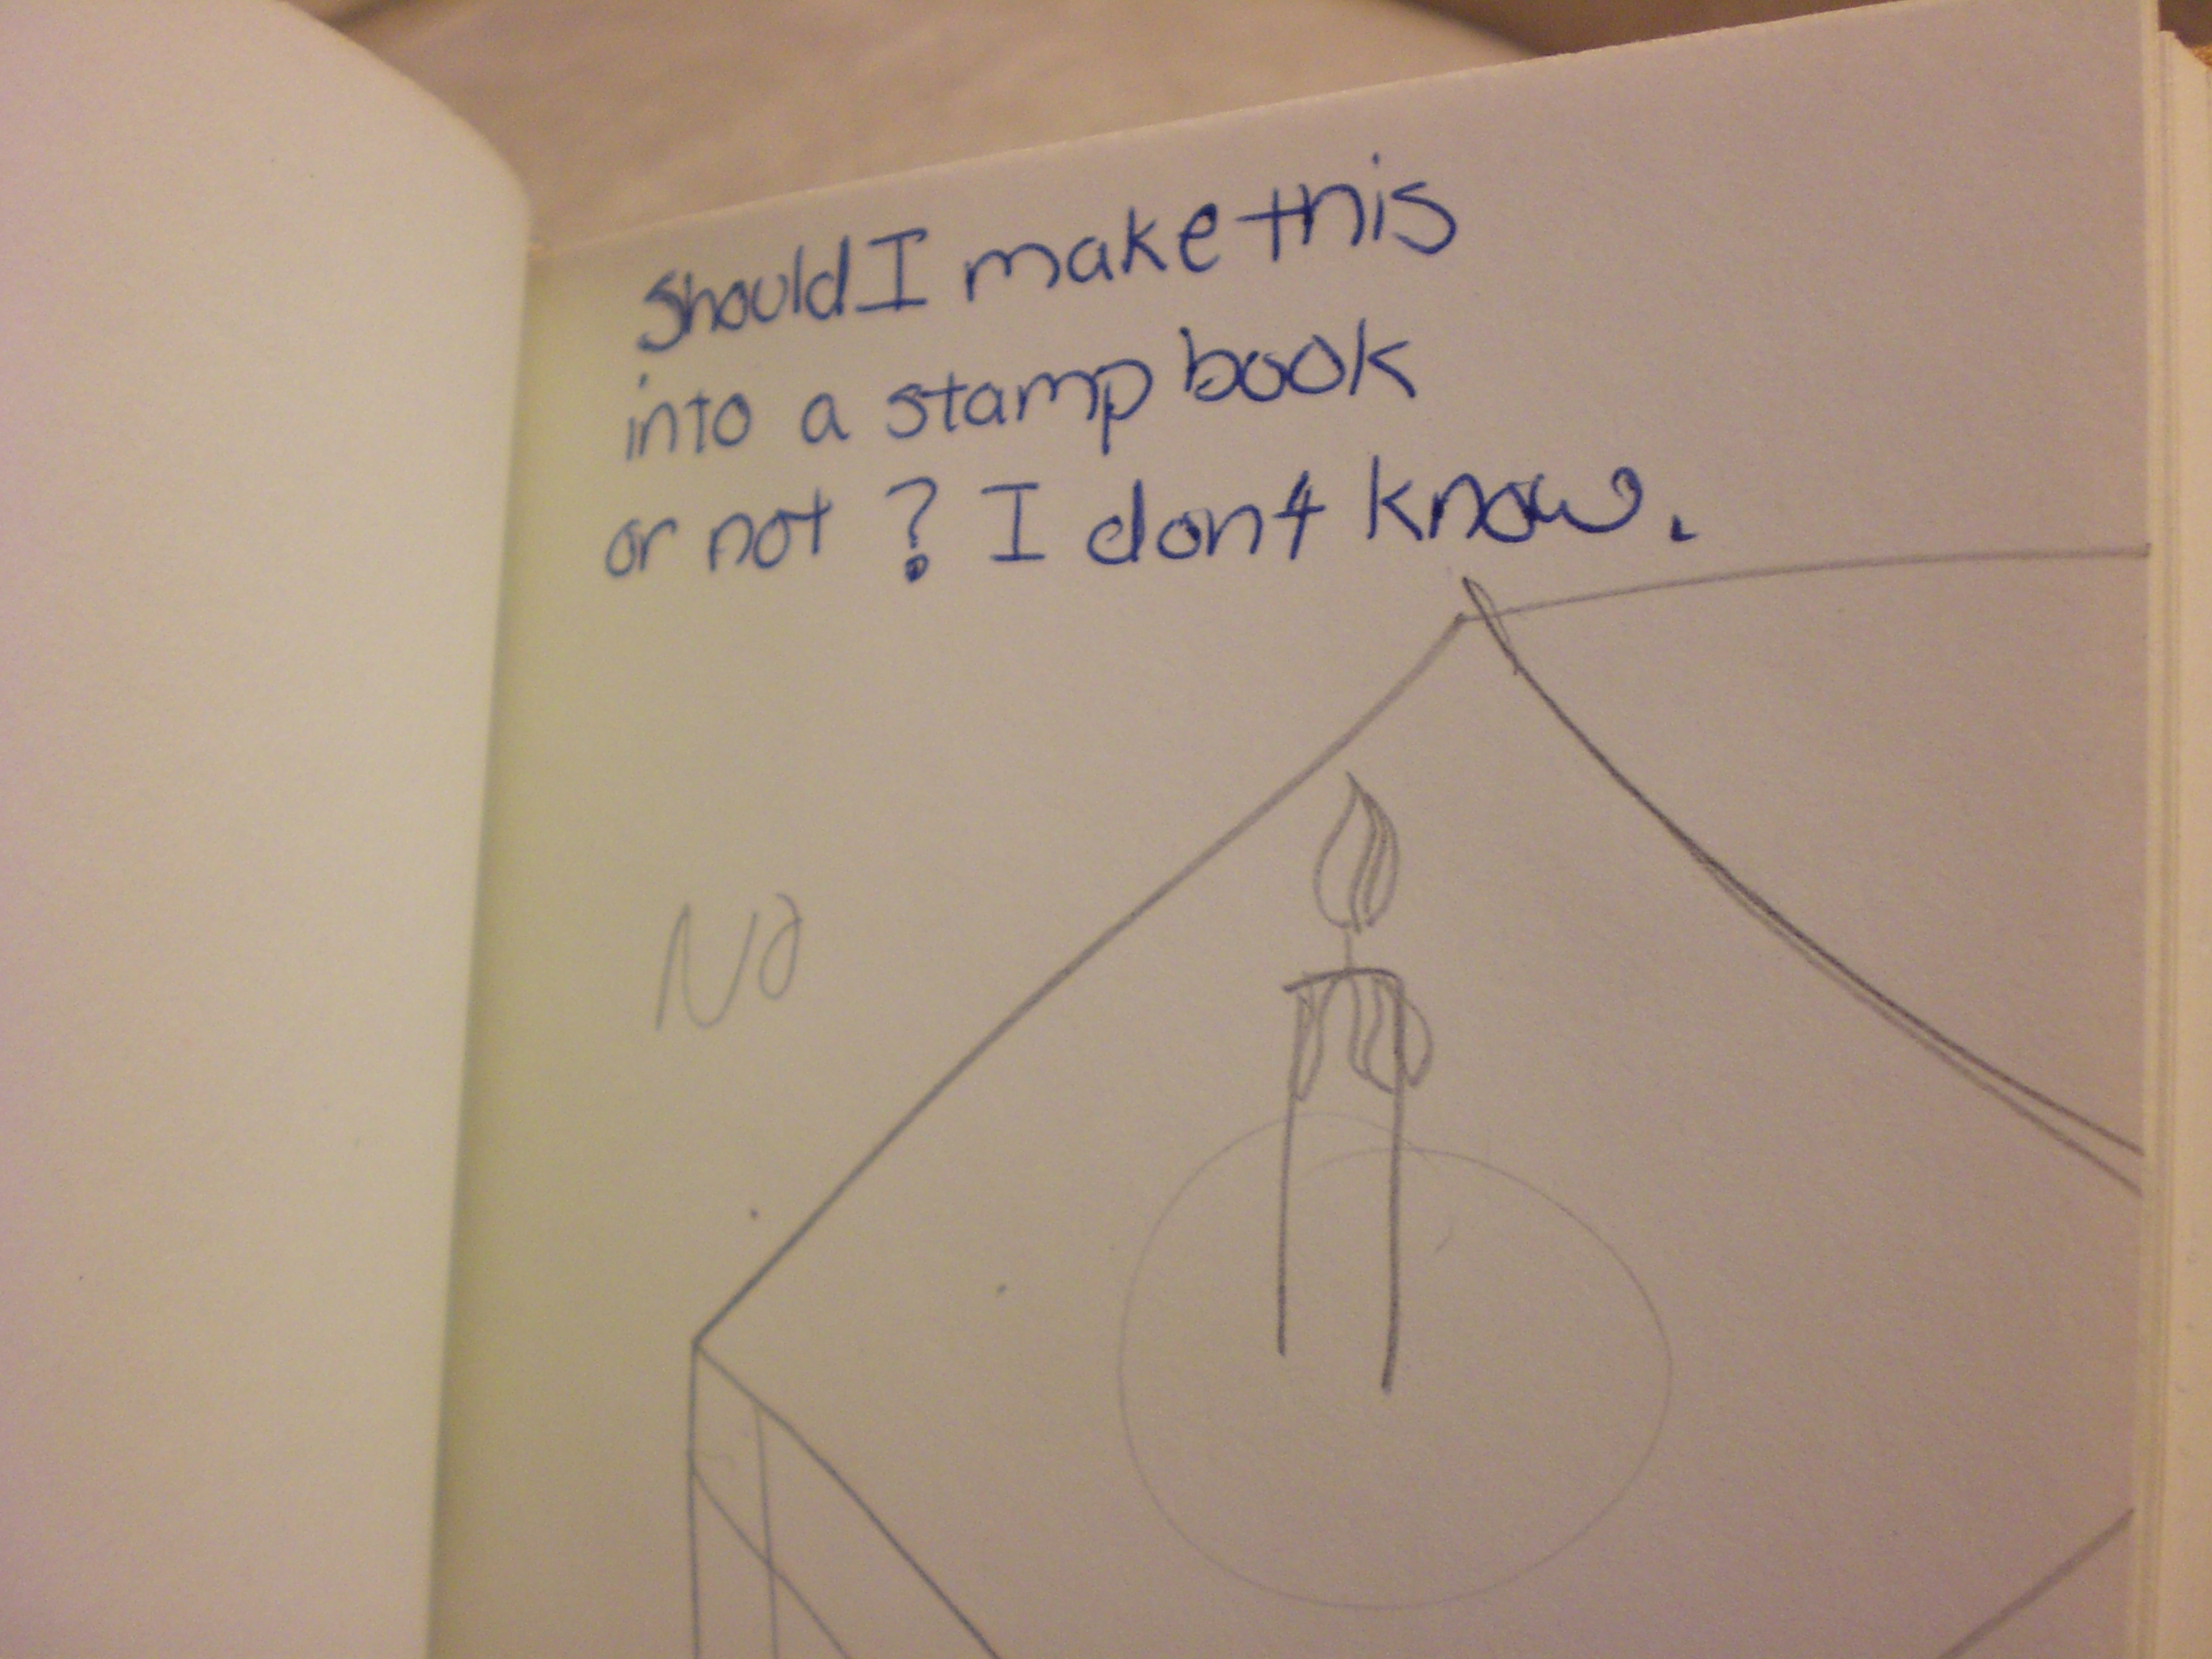 Should I make this
into a stamp book
or not? I dont know.
No